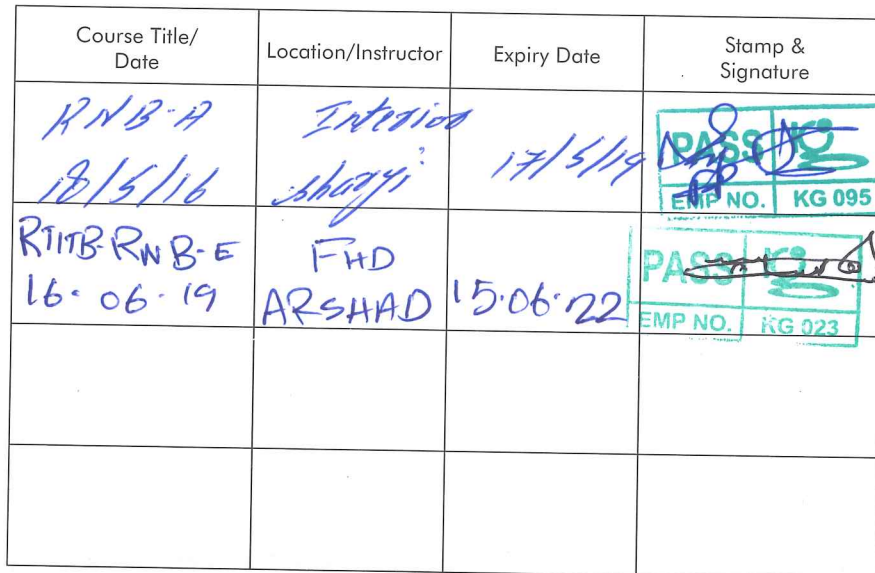 Course Title/
Date
Location/Instructor
Expiry Date
Stamp &
Signature
RNB-A
18/5/16
Interior
shagyi
17/5/19
PASS
EMP NO. KG 095
RTITB-RNB-E
16.06.19
FHD
ARSHAD
15.06.22
PASS
EMP NO. KG 023